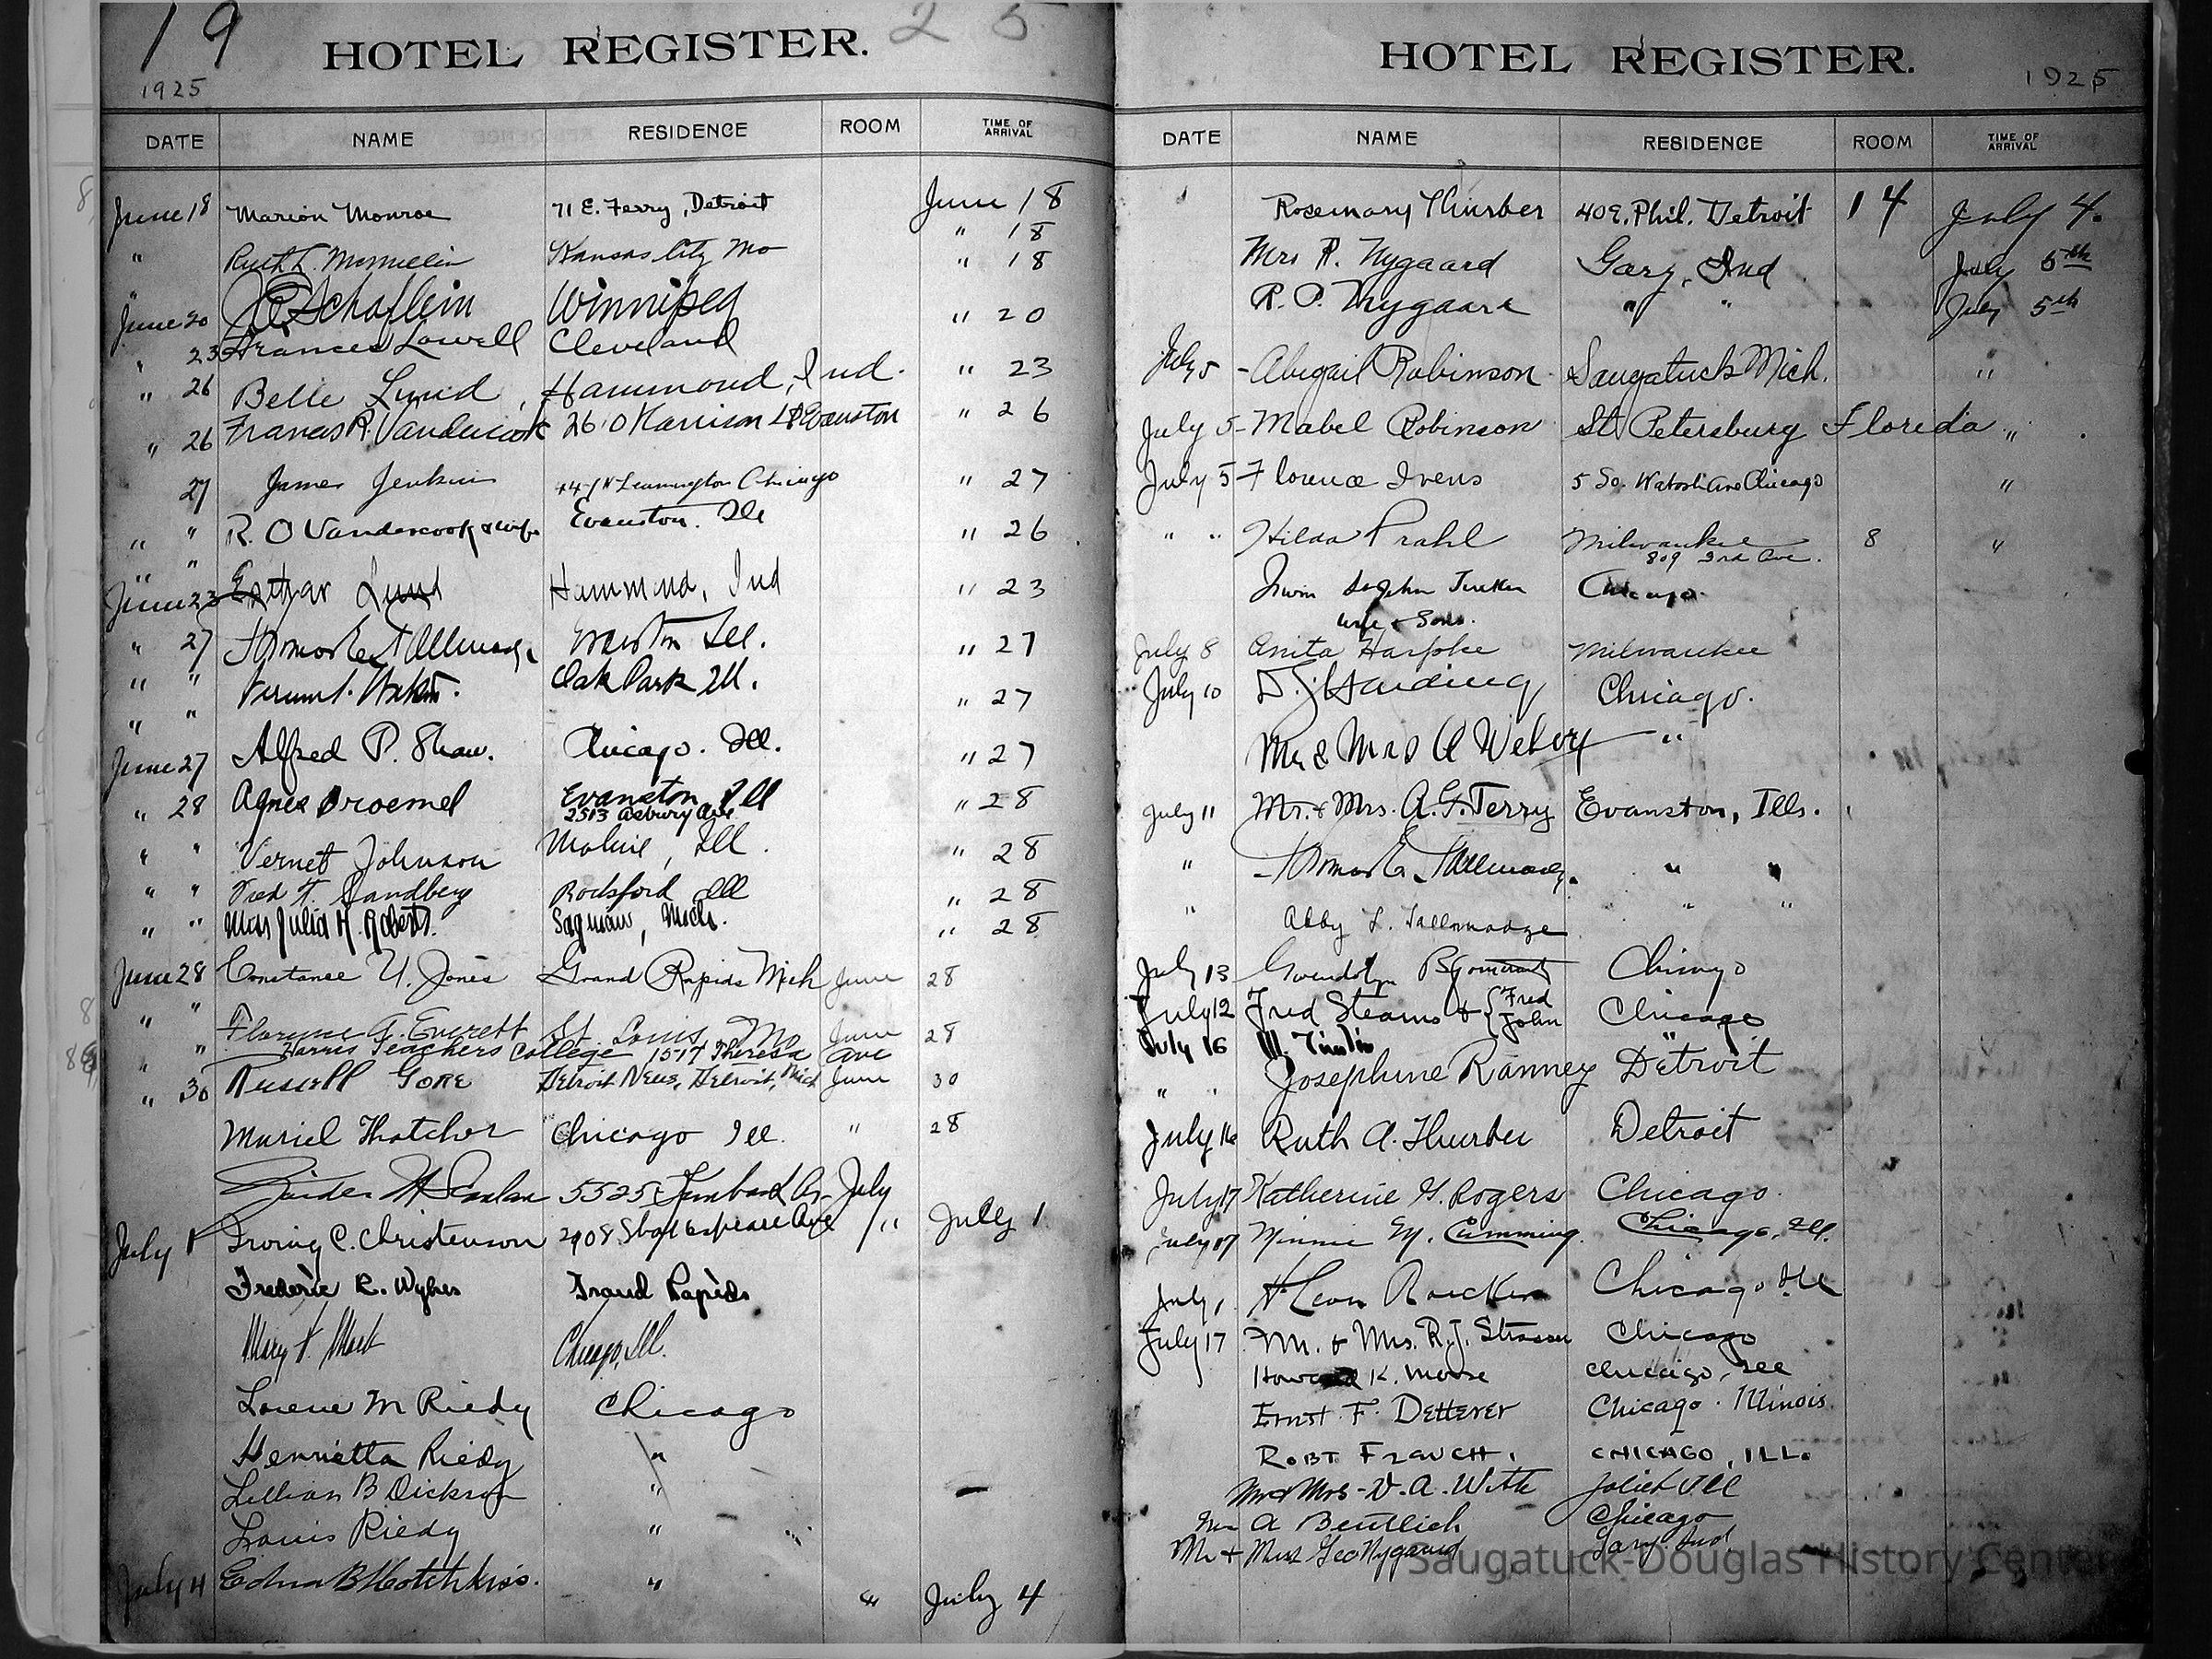 19 25
HOTEL REGISTER.
1925
DATE NAME RESIDENCE ROOM TIME OF ARRIVAL
June 18 Marion Monroe 71 E. Ferry, Detroit June 18
" Ruth L. McMillin Kansas City Mo " 18
" Schaflein Winnipeg " 18
June 20 Frances Lowell Cleveland " 20
" 23 Belle Lund, Hammond, Ind. " 23
" 26 Frances R. Vandercook 2610 Harrison St Evanston " 26
" 26
27 James Jenkins Chicago " 27
" " R. O Vandercook & wife Evanston. Ill " 26
" "
June 23 Esther Lund Hammond, Ind " 23
" 27 Thomas E Tallmadge Evanston Ill. " 27
" " Oak Park Ill. " 27
" "
June 27 Alfred P. Shaw. Chicago. Ill. " 27
" 28 Agnes Droemel Evanston Ill " 28
2513 Asbury Ave
" " Vernet Johnson Moline, Ill. " 28
" " Fred F. Sandberg Rockford Ill " 28
" " Miss Julia H. Roberts. Saginaw, Mich. " 28
June 28 Constance U. Jones Grand Rapids Mich June 28
" " Florence A. Everett St. Louis, Mo June 28
" Harris Teachers College 1517 Theresa Ave
" 30 Russell Gore Detroit News, Detroit, Mich June 30
Muriel Thatcher Chicago Ill. " 28
5525 July
July 1 Irving C. Christenson 2908 Shakespeare Ave " July 1
Frederic R. Wykes Grand Rapids
Mary F. Chicago, Ill.
Lorene M Riedy Chicago
Henrietta Riedy "
Lillian B Dickson "
Louis Riedy "
July 4 Edna B Hotchkiss. " " July 4
HOTEL REGISTER.
1925
DATE NAME RESIDENCE ROOM TIME OF ARRIVAL
Rosemary Thurber 409 E. Phil. Detroit 14 July 4.
Mrs R. Nygaard Gary, Ind July 5th
R. P. Nygaard " " July 5th
July 5 - Abigail Robinson Saugatuck Mich. "
July 5 - Mabel Robinson St Petersburg Florida "
July 5 - Florence Ivens 5 So. Wabash Ave Chicago "
" " Hilda Prahl Milwaukee 8 "
809 3rd Ave.
Irwin St John Tucker Chicago.
wife & Sons.
July 8 Anita Harpke Milwaukee
July 10 Harding Chicago.
Mr & Mrs A Weber "
July 11 Mr. & Mrs. A. G. Terry Evanston, Ills.
" Thomas E Tallmadge. " "
" Abby L. Tallmadge " "
July 13 Gwendolyn Chicago
July 12 Fred Stearns & { Fred John Chicago
July 16 "
" " Josephine Ranney Detroit
July 16 Ruth A. Thurber Detroit
July 17 Katherine G. Rogers Chicago.
July 17 Minnie M. Cumming. Chicago, Ill.
July Leon Chicago Ill
July 17 Mr. & Mrs. R. J. Strasser Chicago
Howard K. Morse Chicago, Ill
Ernst F. Detterer Chicago. Illinois.
ROBT FRAUCH. CHICAGO, ILL.
Mr & Mrs - V. A. With Joliet Ill
A Bentlich Chicago
Mr & Mrs Geo Nygaard Gary Ind
Saugatuck-Douglas History Center